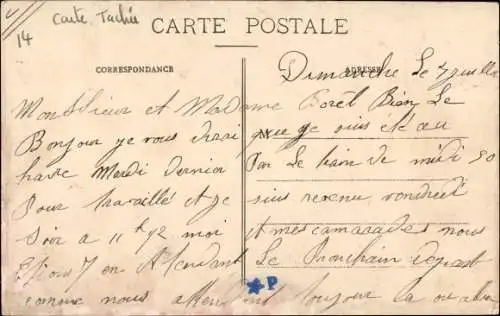 Carte Tachée
14
CARTE POSTALE
CORRESPONDANCE
ADRESSE
Dimanche Le 7 juillet
Monsieur et Madame Borel Bien Le
Bonjour je vous dirai que je suis
Mardi Dernier Par Le train de midi 50
Pour travaillé et je suis revenu vendredi
Soir a 11h 1/2 moi et mes camarades nous
en Attendant Le Prochain départ
comme nous toujour la
P